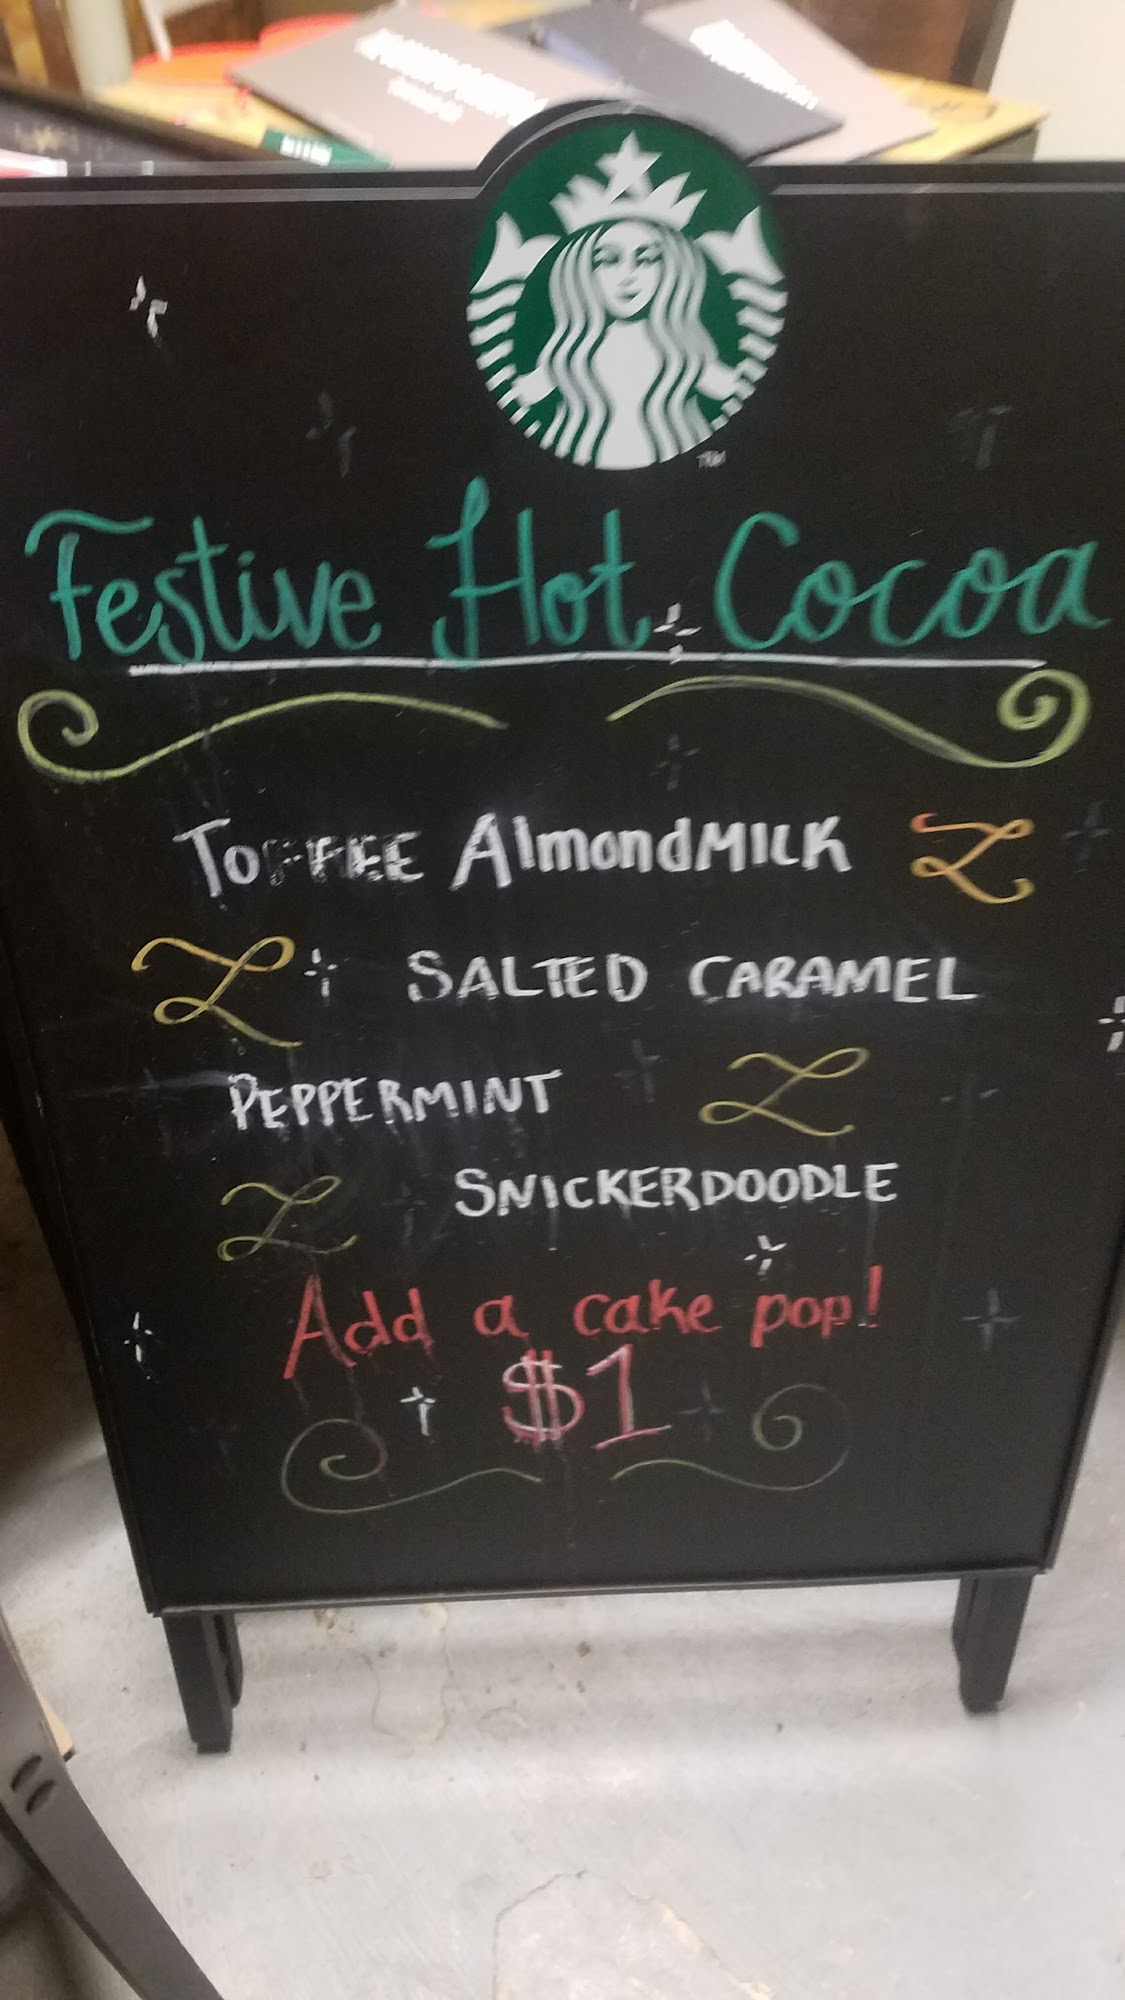 TM
Festive Hot Cocoa
TOFFEE AlmondMILK
SALTED CARAMEL
PEPPERMINT
SNICKERDOODLE
Add a cake pop!
$1